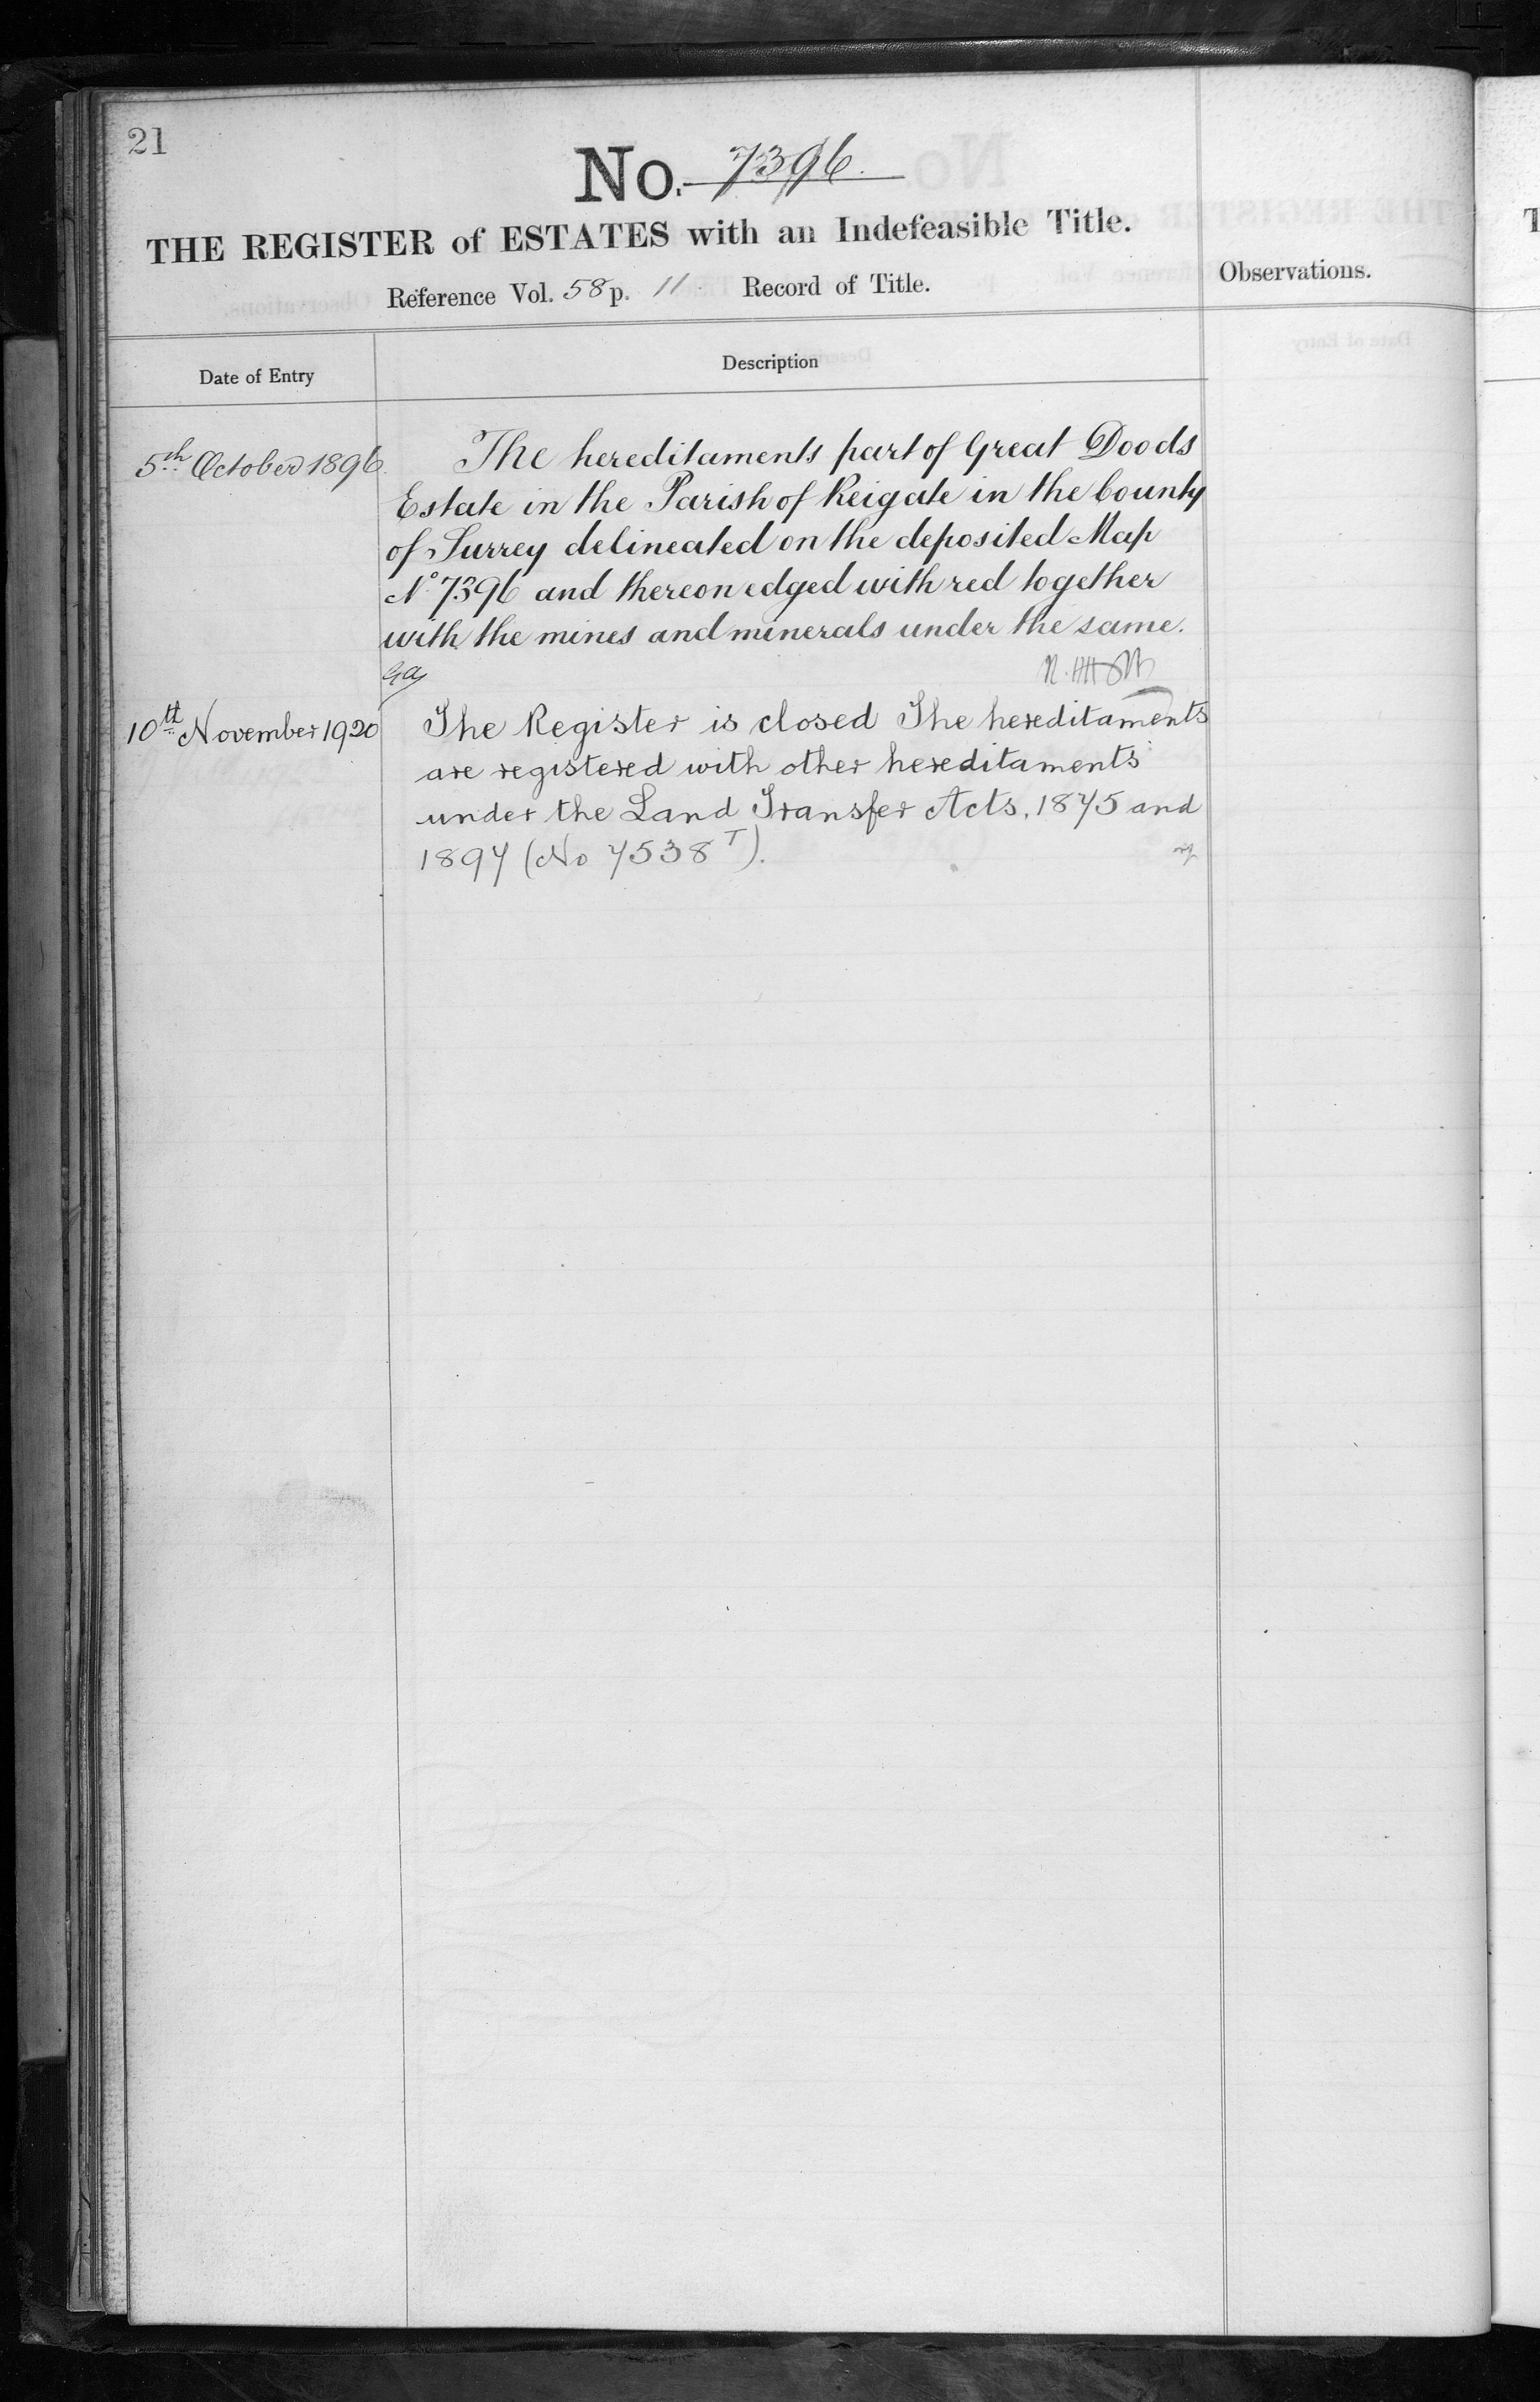 21
No. 7396.
THE REGISTER of ESTATES with an Indefeasible Title.
Reference Vol. 58 p. 11 Record of Title.
Observations.
Date of Entry
Description
5th October 1896.
The hereditaments part of Great Doods
Estate in the Parish of Reigate in the County
of Surrey delineated on the deposited Map
No 7396 and thereon edged with red together
with the mines and minerals under the same.
10th November 1920
The Register is closed The hereditaments
are registered with other hereditaments
under the Land Transfer Acts, 1875 and
1897 (No 7538 T).